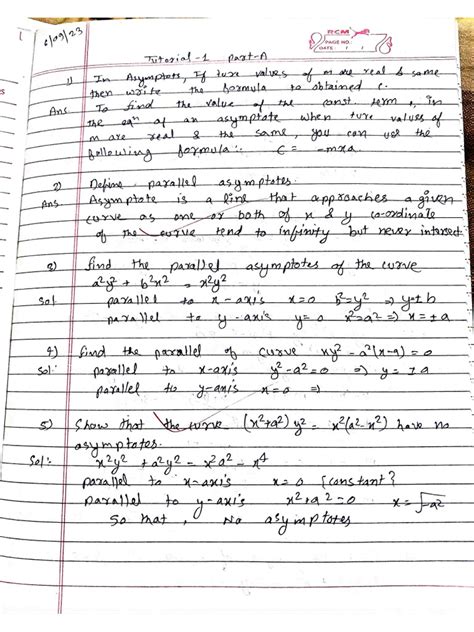 6/09/23
RCM
PAGE NO.
DATE
Tutorial-1 Part-A
1) In Asymptots, If two values of m are real & same
then write the formula to obtained c.
Ans To find the value of the const. term, in
the eqn of an asymptote when two values of
m are real & the same, you can use the
following formula:- C = -mxa
2) Define parallel asymptotes.
Ans Asymptote is a line that approaches a given
curve as one or both of x & y co-ordinate
of the curve tend to infinity but never intersect
3) find the parallel asymptotes of the curve
a²y² + b²x² = x²y²
Sol parallel to x-axis x=0 b²=y² ⇒ y±b
parallel to y-axis y=0 x²=a² ⇒ x=±a
4) find the parallel of curve xy² - a²(x-a) = 0
Sol: parallel to x-axis y²-a²=0 ⇒ y = ±a
parallel to y-axis x=0 ⇒
5) Show that the curve (x²+a²) y² = x²(a²-x²) have no
asymptotes.
Sol: x²y² + a²y² = x²a² - x⁴
parallel to x-axis x=0 [constant]
parallel to y-axis x²+a²=0 x=√-a²
So that, No asymptotes